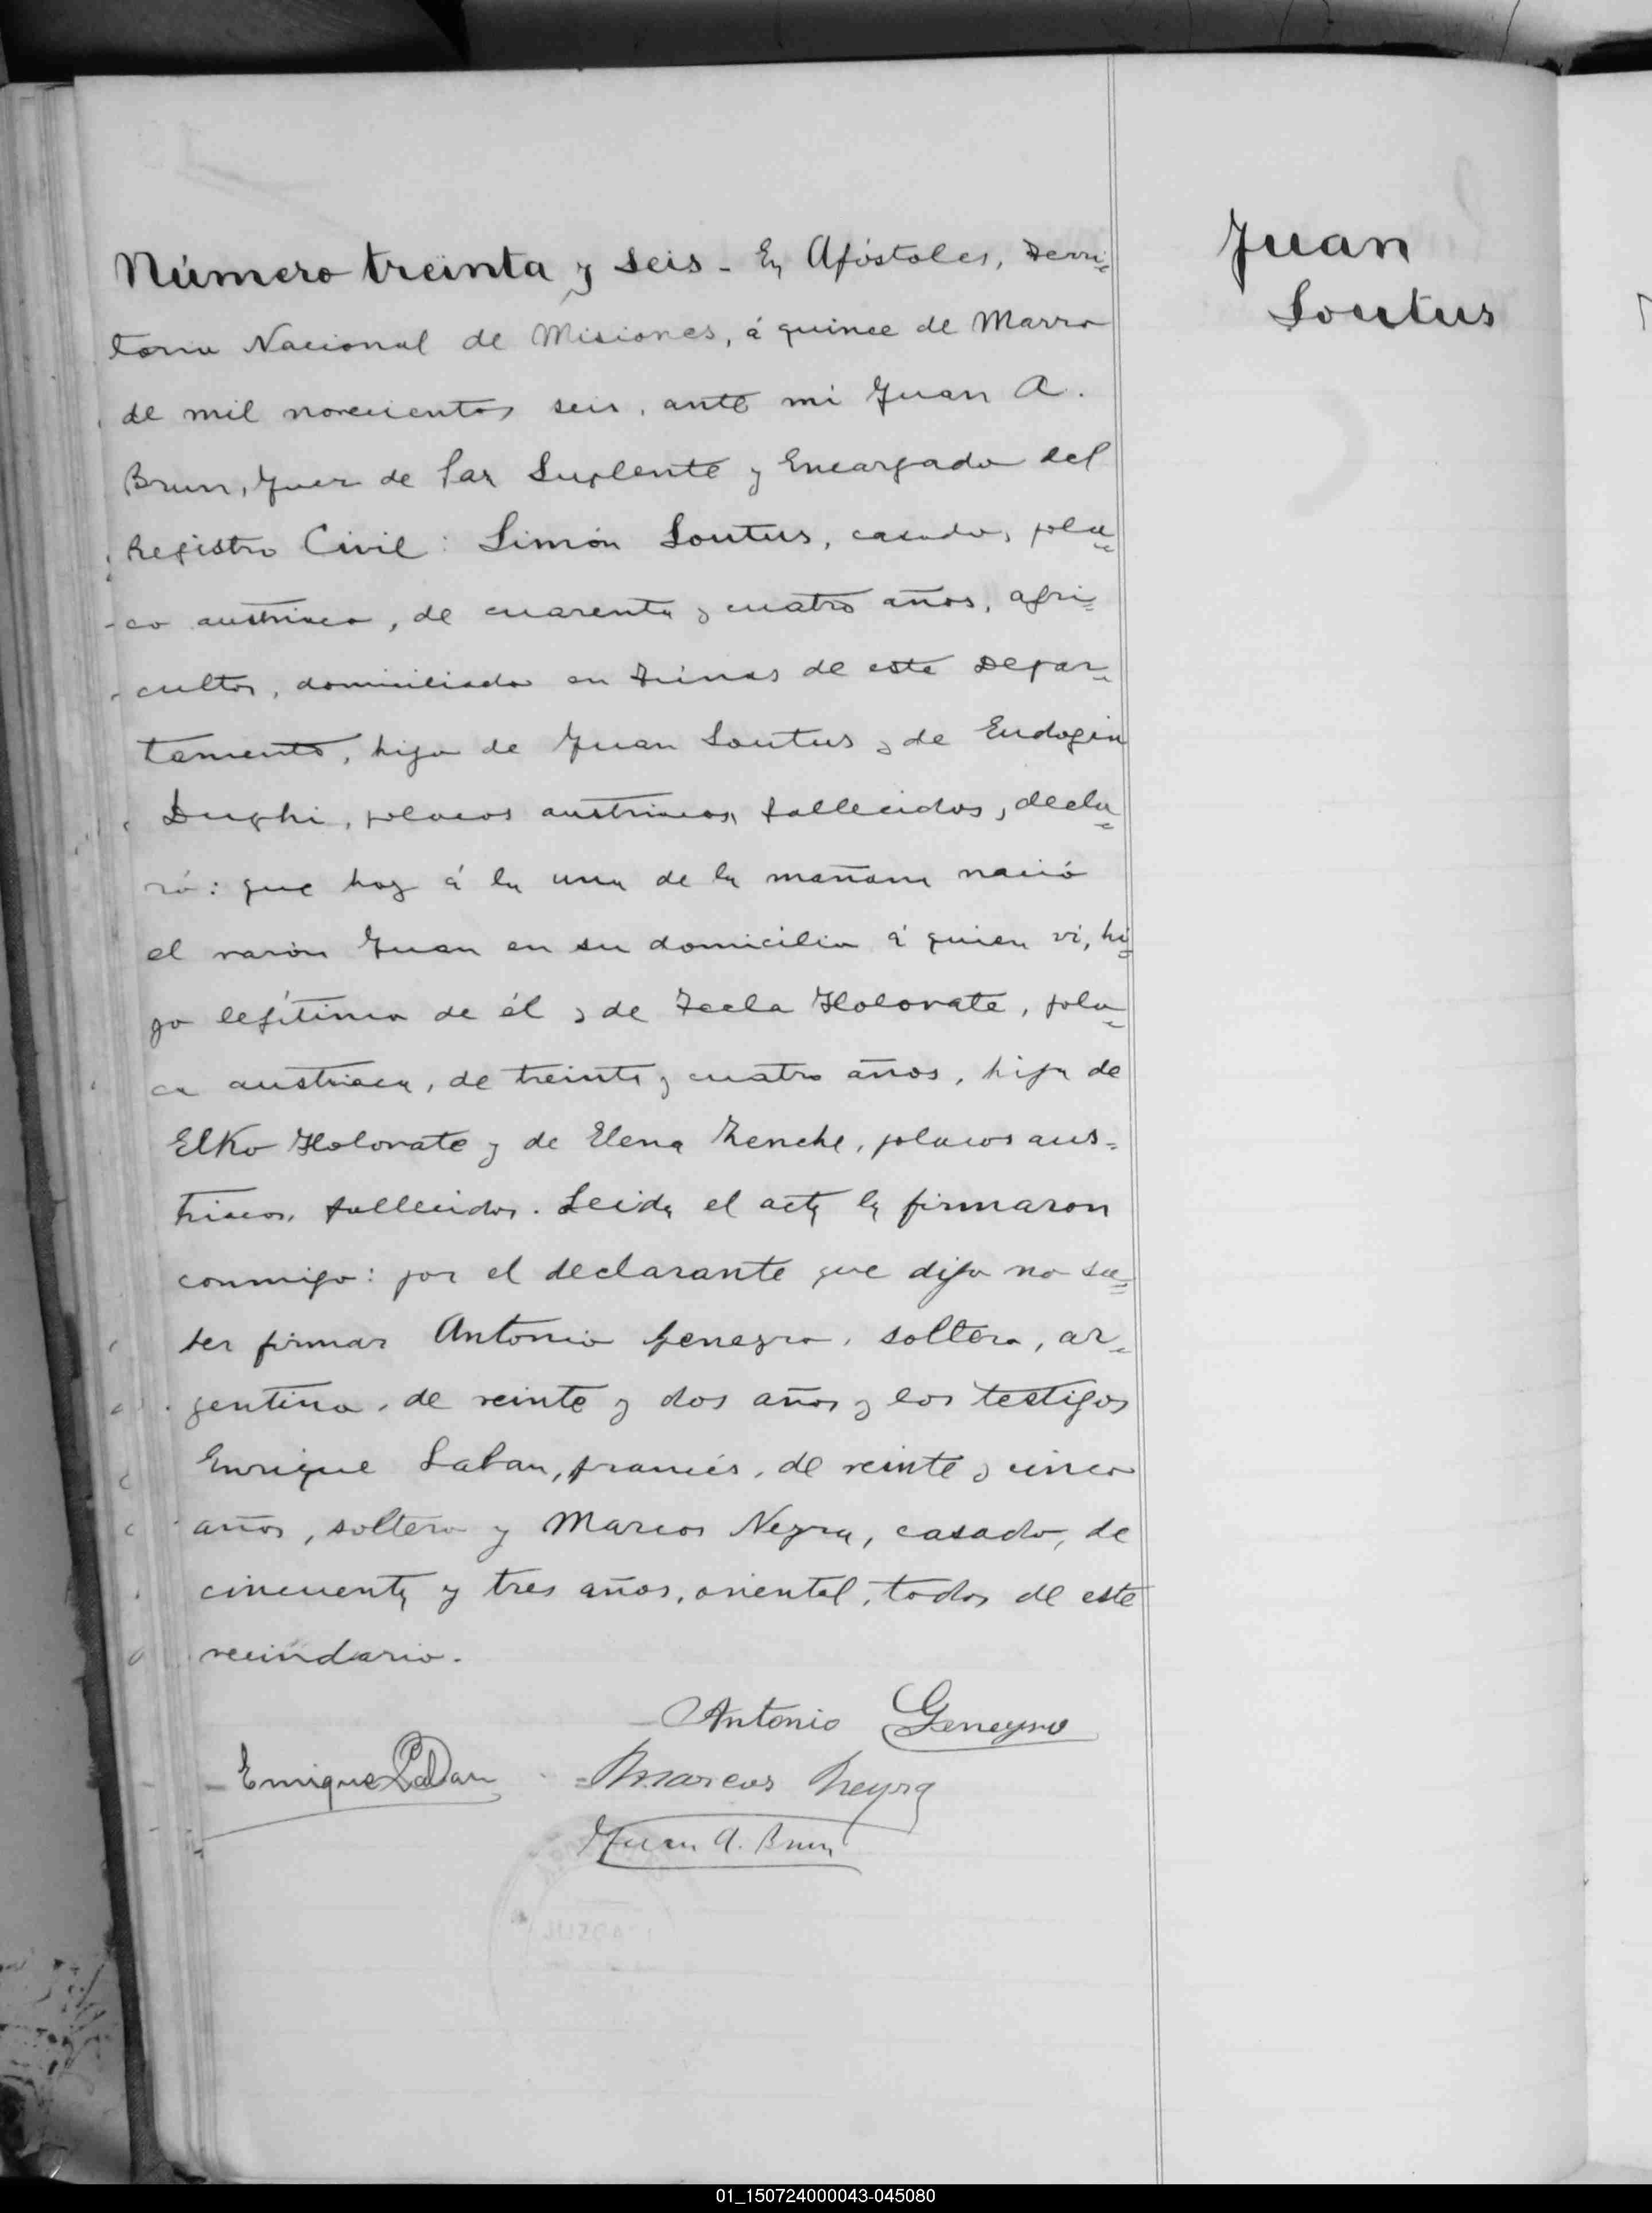 Número treinta y seis - En Apóstoles, Terri=
torio Nacional de Misiones, á quince de Marzo
de mil novecientos seis, ante mi Juan A.
Brun, Juez de Paz Suplente y Encargado del
Registro Civil: Simón Soutus, casado, pola=
co austriaco, de cuarenta y cuatro años, agri=
cultor, domiciliado en Tunas de este Depar=
tamento, hijo de Juan Soutus y de Eudogia
Dughi, polacos austriacos, fallecidos, decla=
ró: que hoy á la una de la mañana nació
el varón Juan en su domicilio á quien vi, hi=
jo legítimo de él y de Tecla Holovate, pola=
ca austriaca, de treinta y cuatro años, hija de
Elko Holovate y de Elena Zenche, polacos aus=
triacos, fallecidos. Leida el acta la firmaron
conmigo: por el declarante que dijo no sa=
ber firmar Antonio Geneyro, soltero, ar=
gentino, de veinte y dos años y los testigos
Enrique Laban, francés, de veinte y cinco
años, soltero y Marcos Neyra, casado, de
cincuenta y tres años, oriental, todos de este
vecindario.
Antonio Geneyro
Enrique Laban
Marcos Neyra
Juan A. Brun
Juan
Soutus
01_150724000043-045080